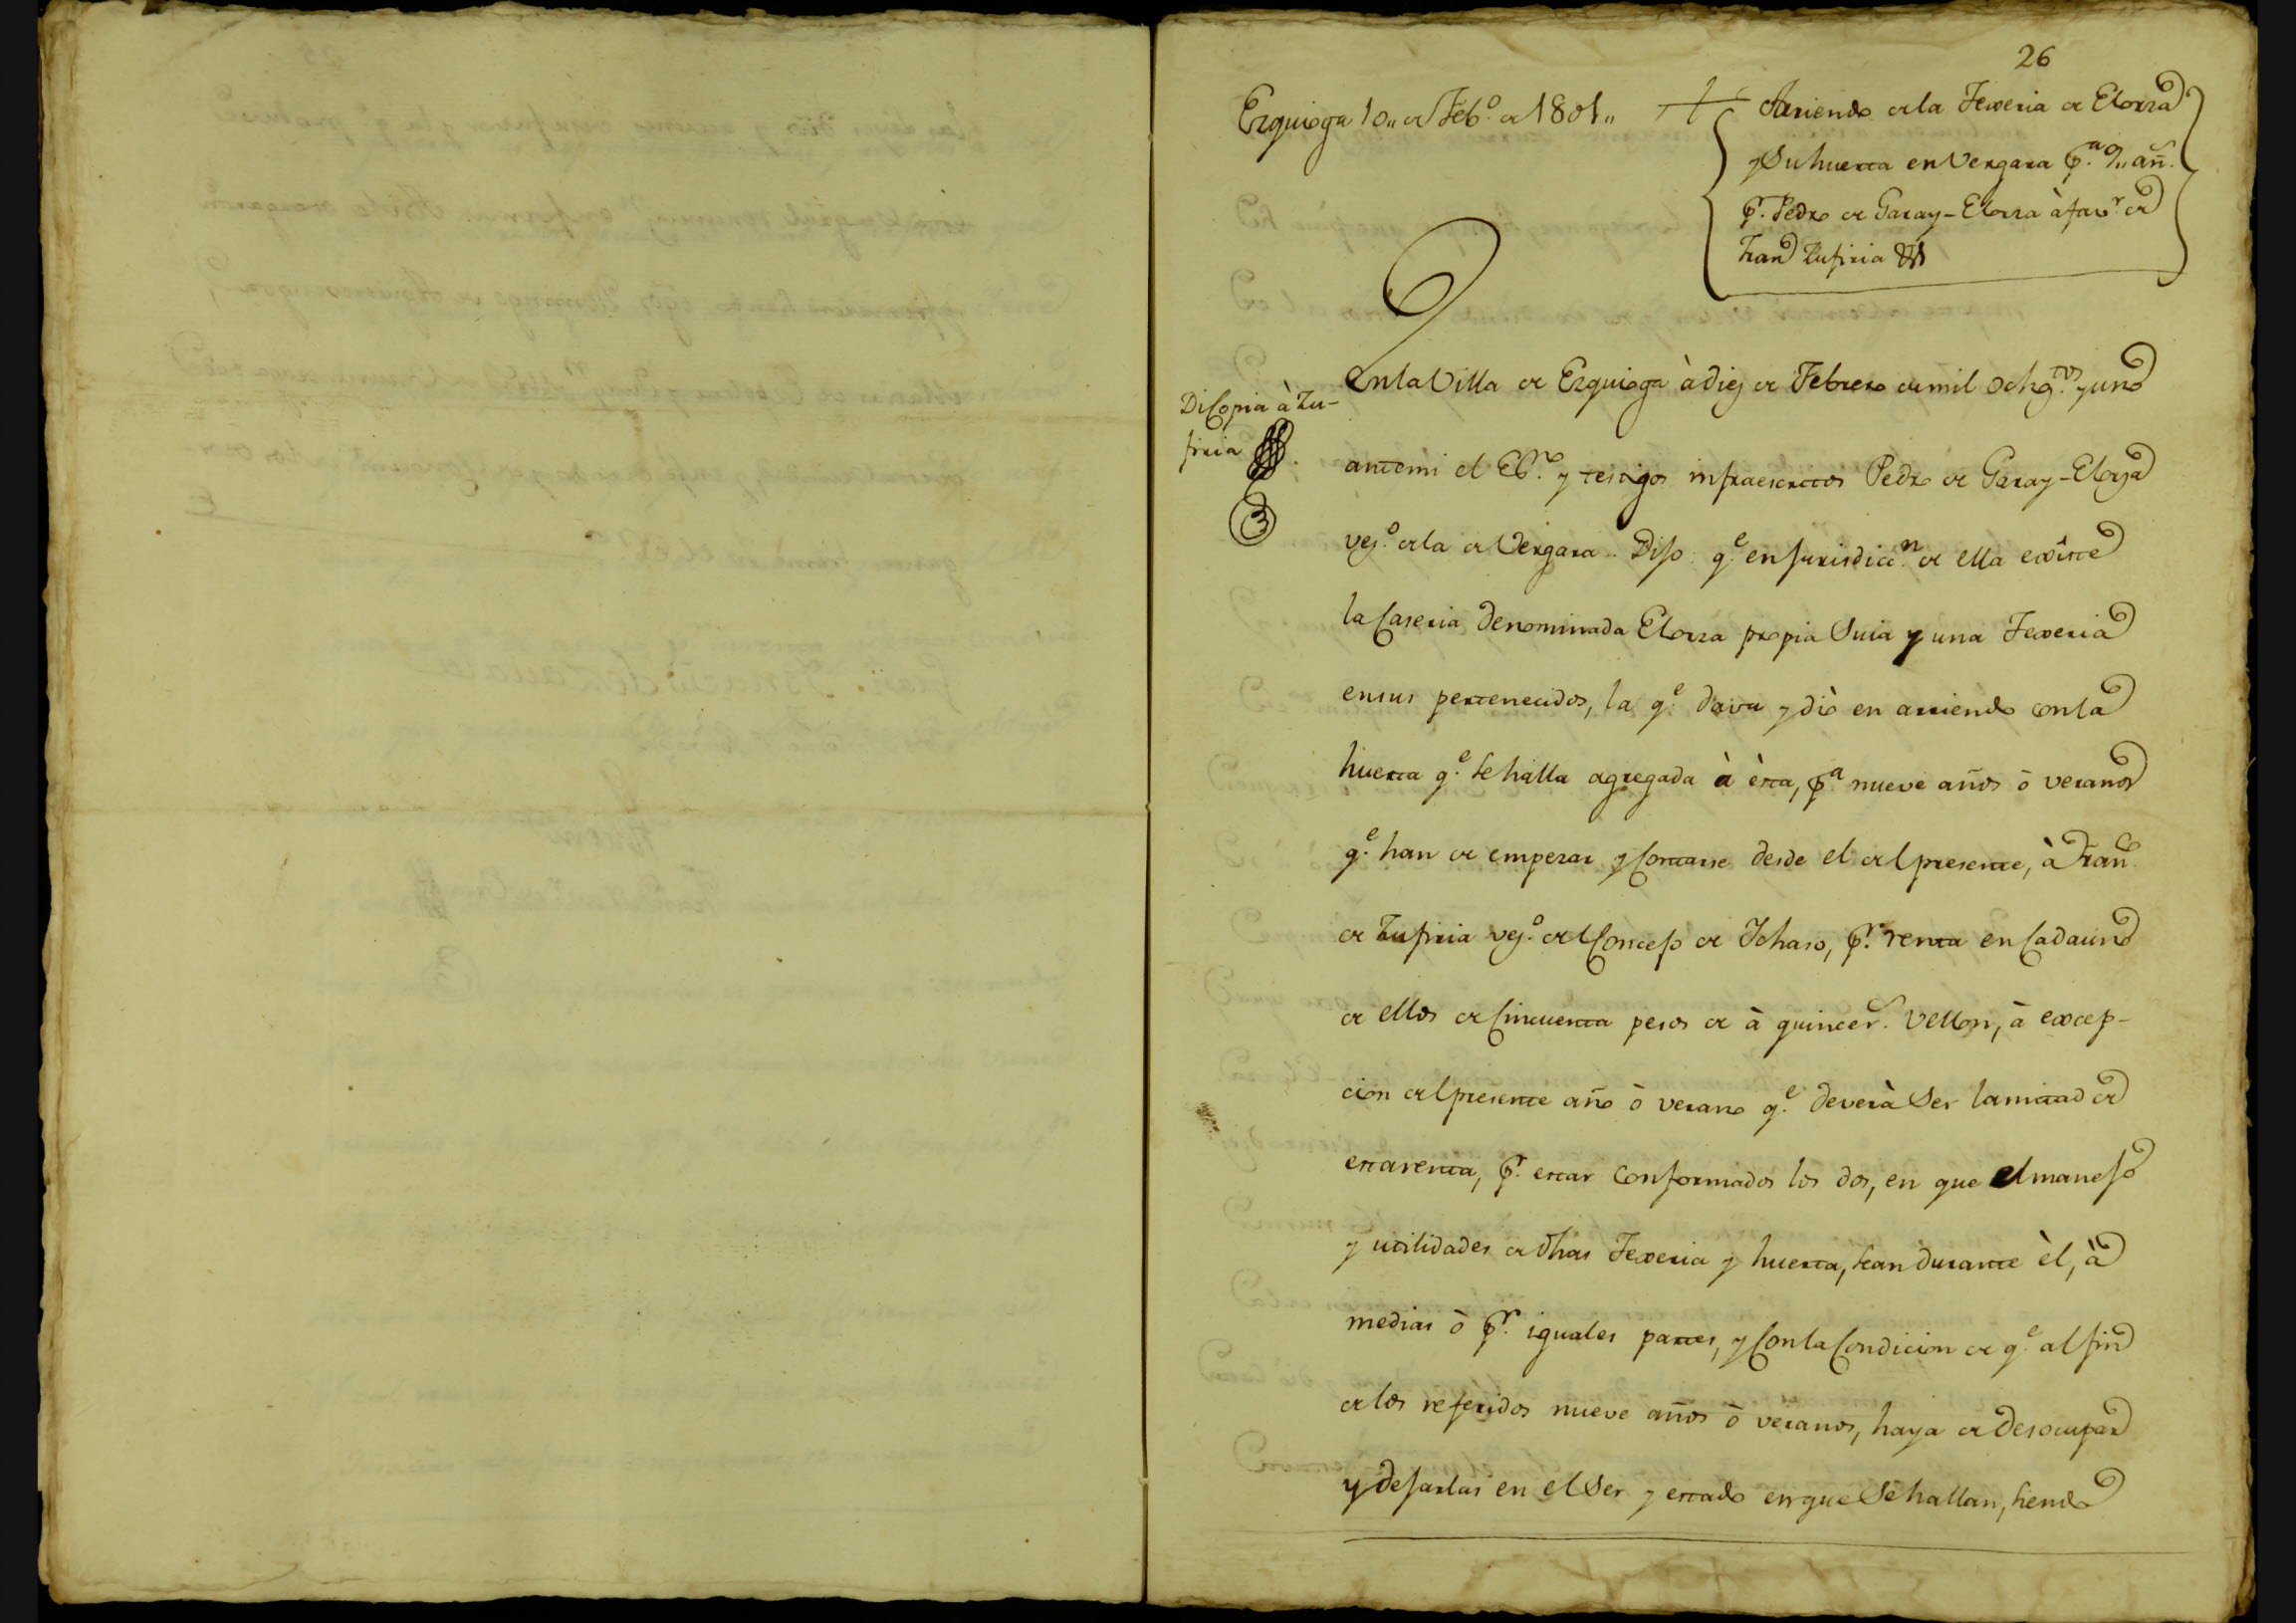 26
Ezquioga 10,, de Feb.º de 1801,,
Arriendo de la Texeria de Elorza
y Su huerta en Vergara p.ª 9,, añ.s
p.r Pedro de Garay-Elorza à fav.r de
Fran.co Zufiria
Di Copia à Zu-
firia
3
En la Villa de Ezquioga à diez de Febrero de mil Ochoz.tos y uno
ante mi el Es.no y testigos infraescritos Pedro de Garay-Elorza
vez.º de la de Vergara. Dijo q.e en jurisdicc.n de ella existe
la Caseria denominada Elorza propia Suia y una Texeria
en sus pertenecidos, la q.e dava y diò en arriendo con la
huerta q.e se halla agregada à èsta, p.ª nueve años ò veranos
q.e han de empezar y Contarse desde el del presente, à Fran.co
de Zufiria vez.º del Concejo de Ichaso, p.r renta en Cada uno
de ellos de Cincuenta pesos de à quince r.s Vellon, à excep-
cion del presente año ò verano q.e deverà Ser la mitad de
esta renta, p.r estar Conformados los dos, en que el manejo
y utilidades de dhas Texeria y huerta, sean durante èl, à
medias ò p.r iguales partes, y Con la Condicion de q.e al fin
de los referidos nueve años ò veranos, haya de desocupar
y dejarlas en el Ser y estado en que Se hallan, siendo